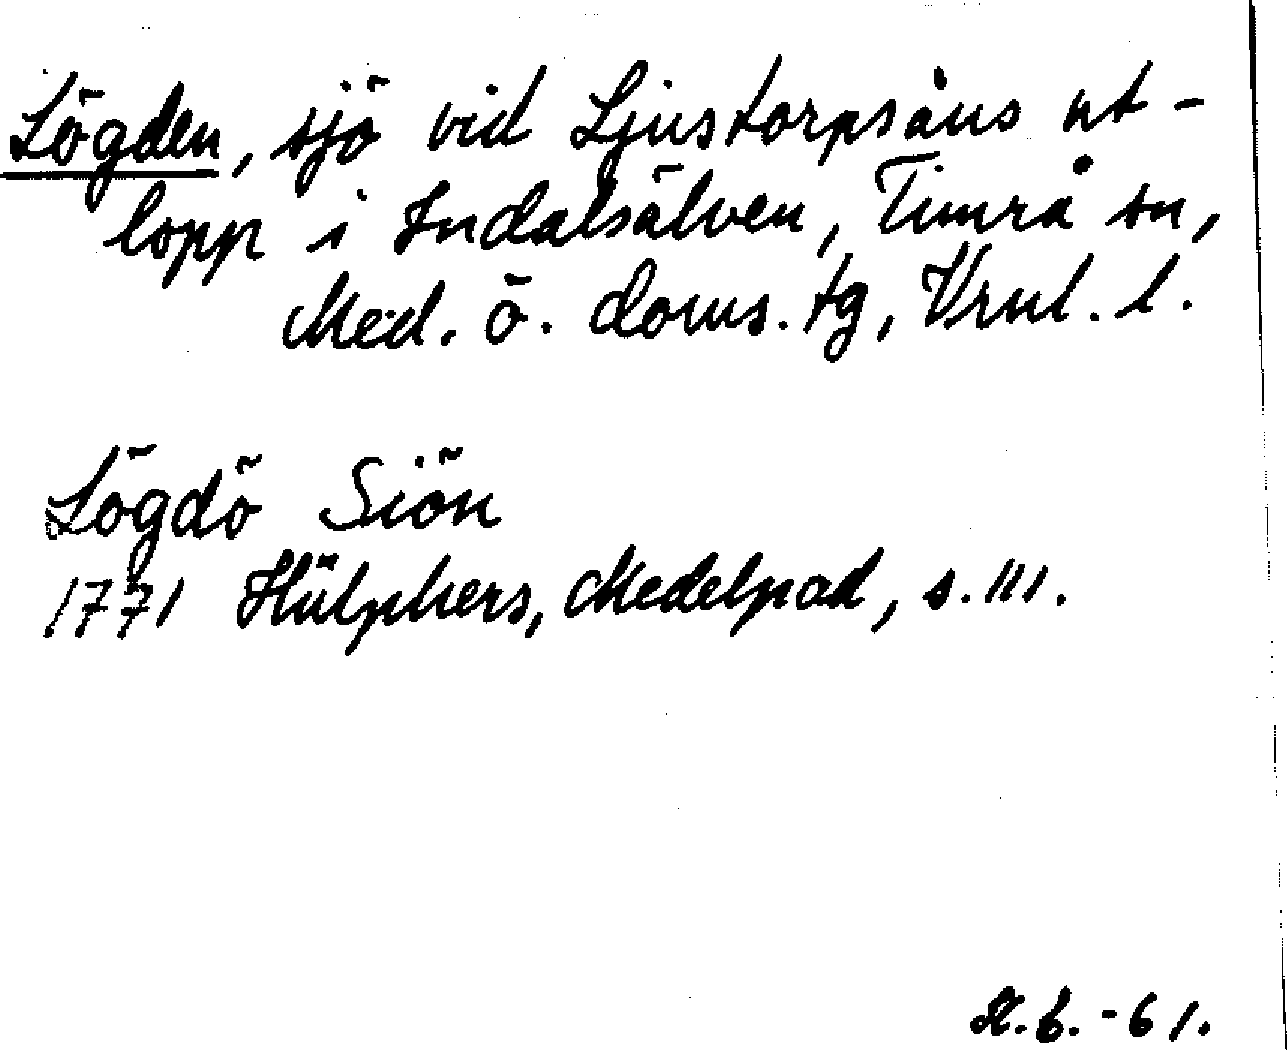 Lögden, sjö vid Ljustorpsåns ut-
lopp i Indalsälven, Timrå sn,
Med. ö. doms. tg, Vrnl. l.
Lögdö Siön
1771 Hülphers, Medelpad, s. 111.
-61.